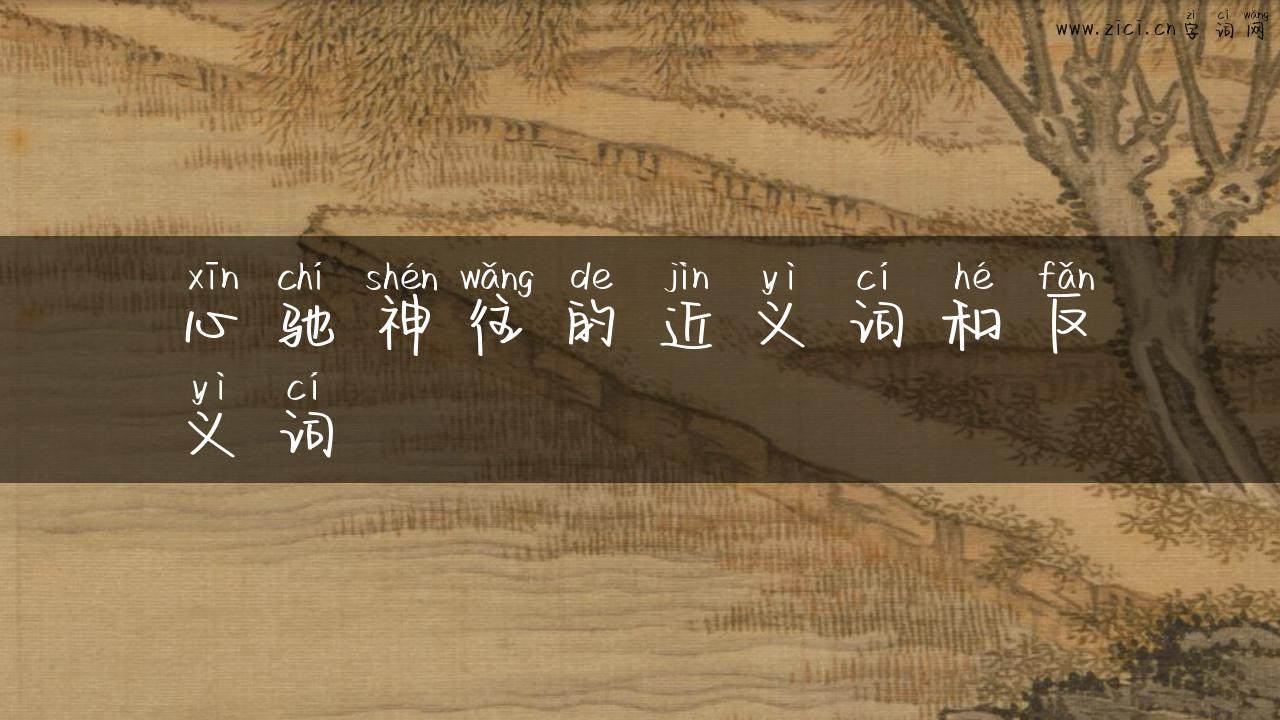 zì cí wǎng
www.zici.cn 字词网
xīn chí shén wǎng de jìn yì cí hé fǎn
心驰神往的近义词和反
yì cí
义词